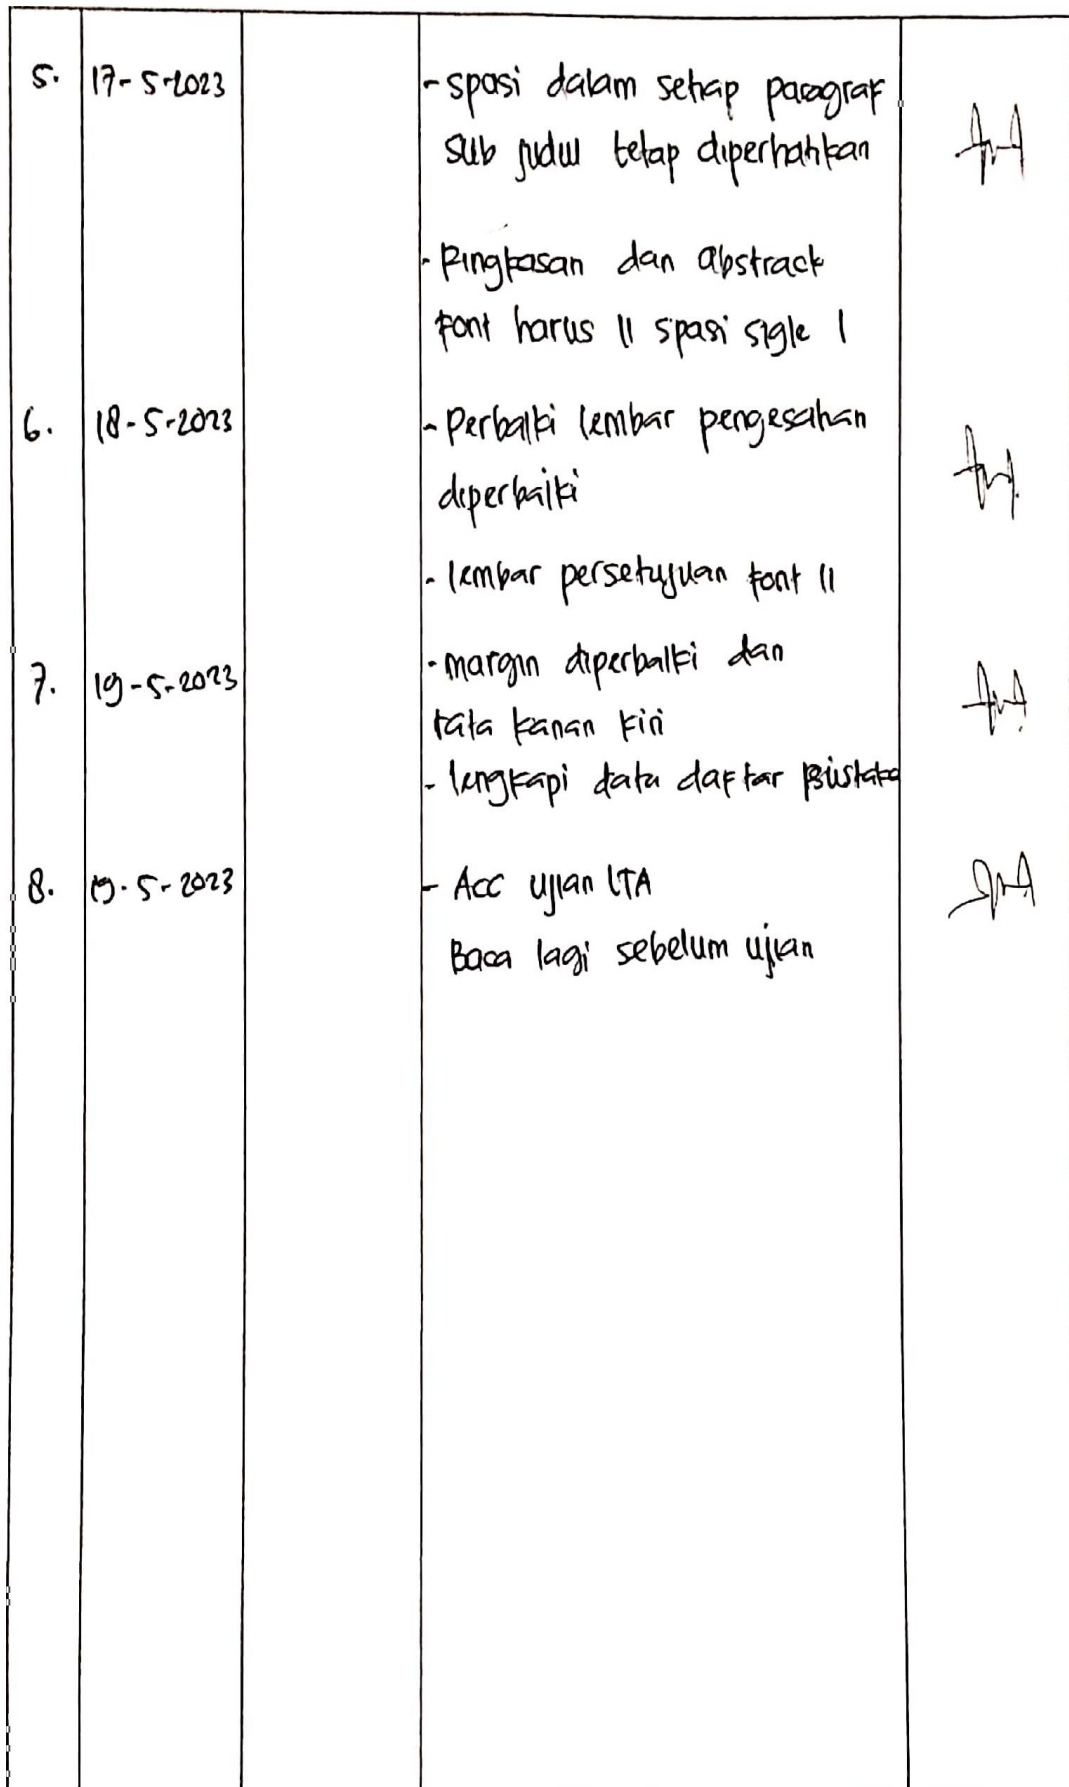 5. 17-5-2023 - spasi dalam setiap paragraf
sub judul tetap diperhatikan
- Ringkasan dan abstrack
font harus 11 spasi sigle 1
6. 18-5-2023 - Perbaiki lembar pengesahan
diperbaiki
- lembar persetujuan font 11
7. 19-5-2023 - margin diperbaiki dan
rata kanan kiri
- lengkapi data daftar pustaka
8. 19-5-2023 - Acc ujian LTA
Baca lagi sebelum ujian